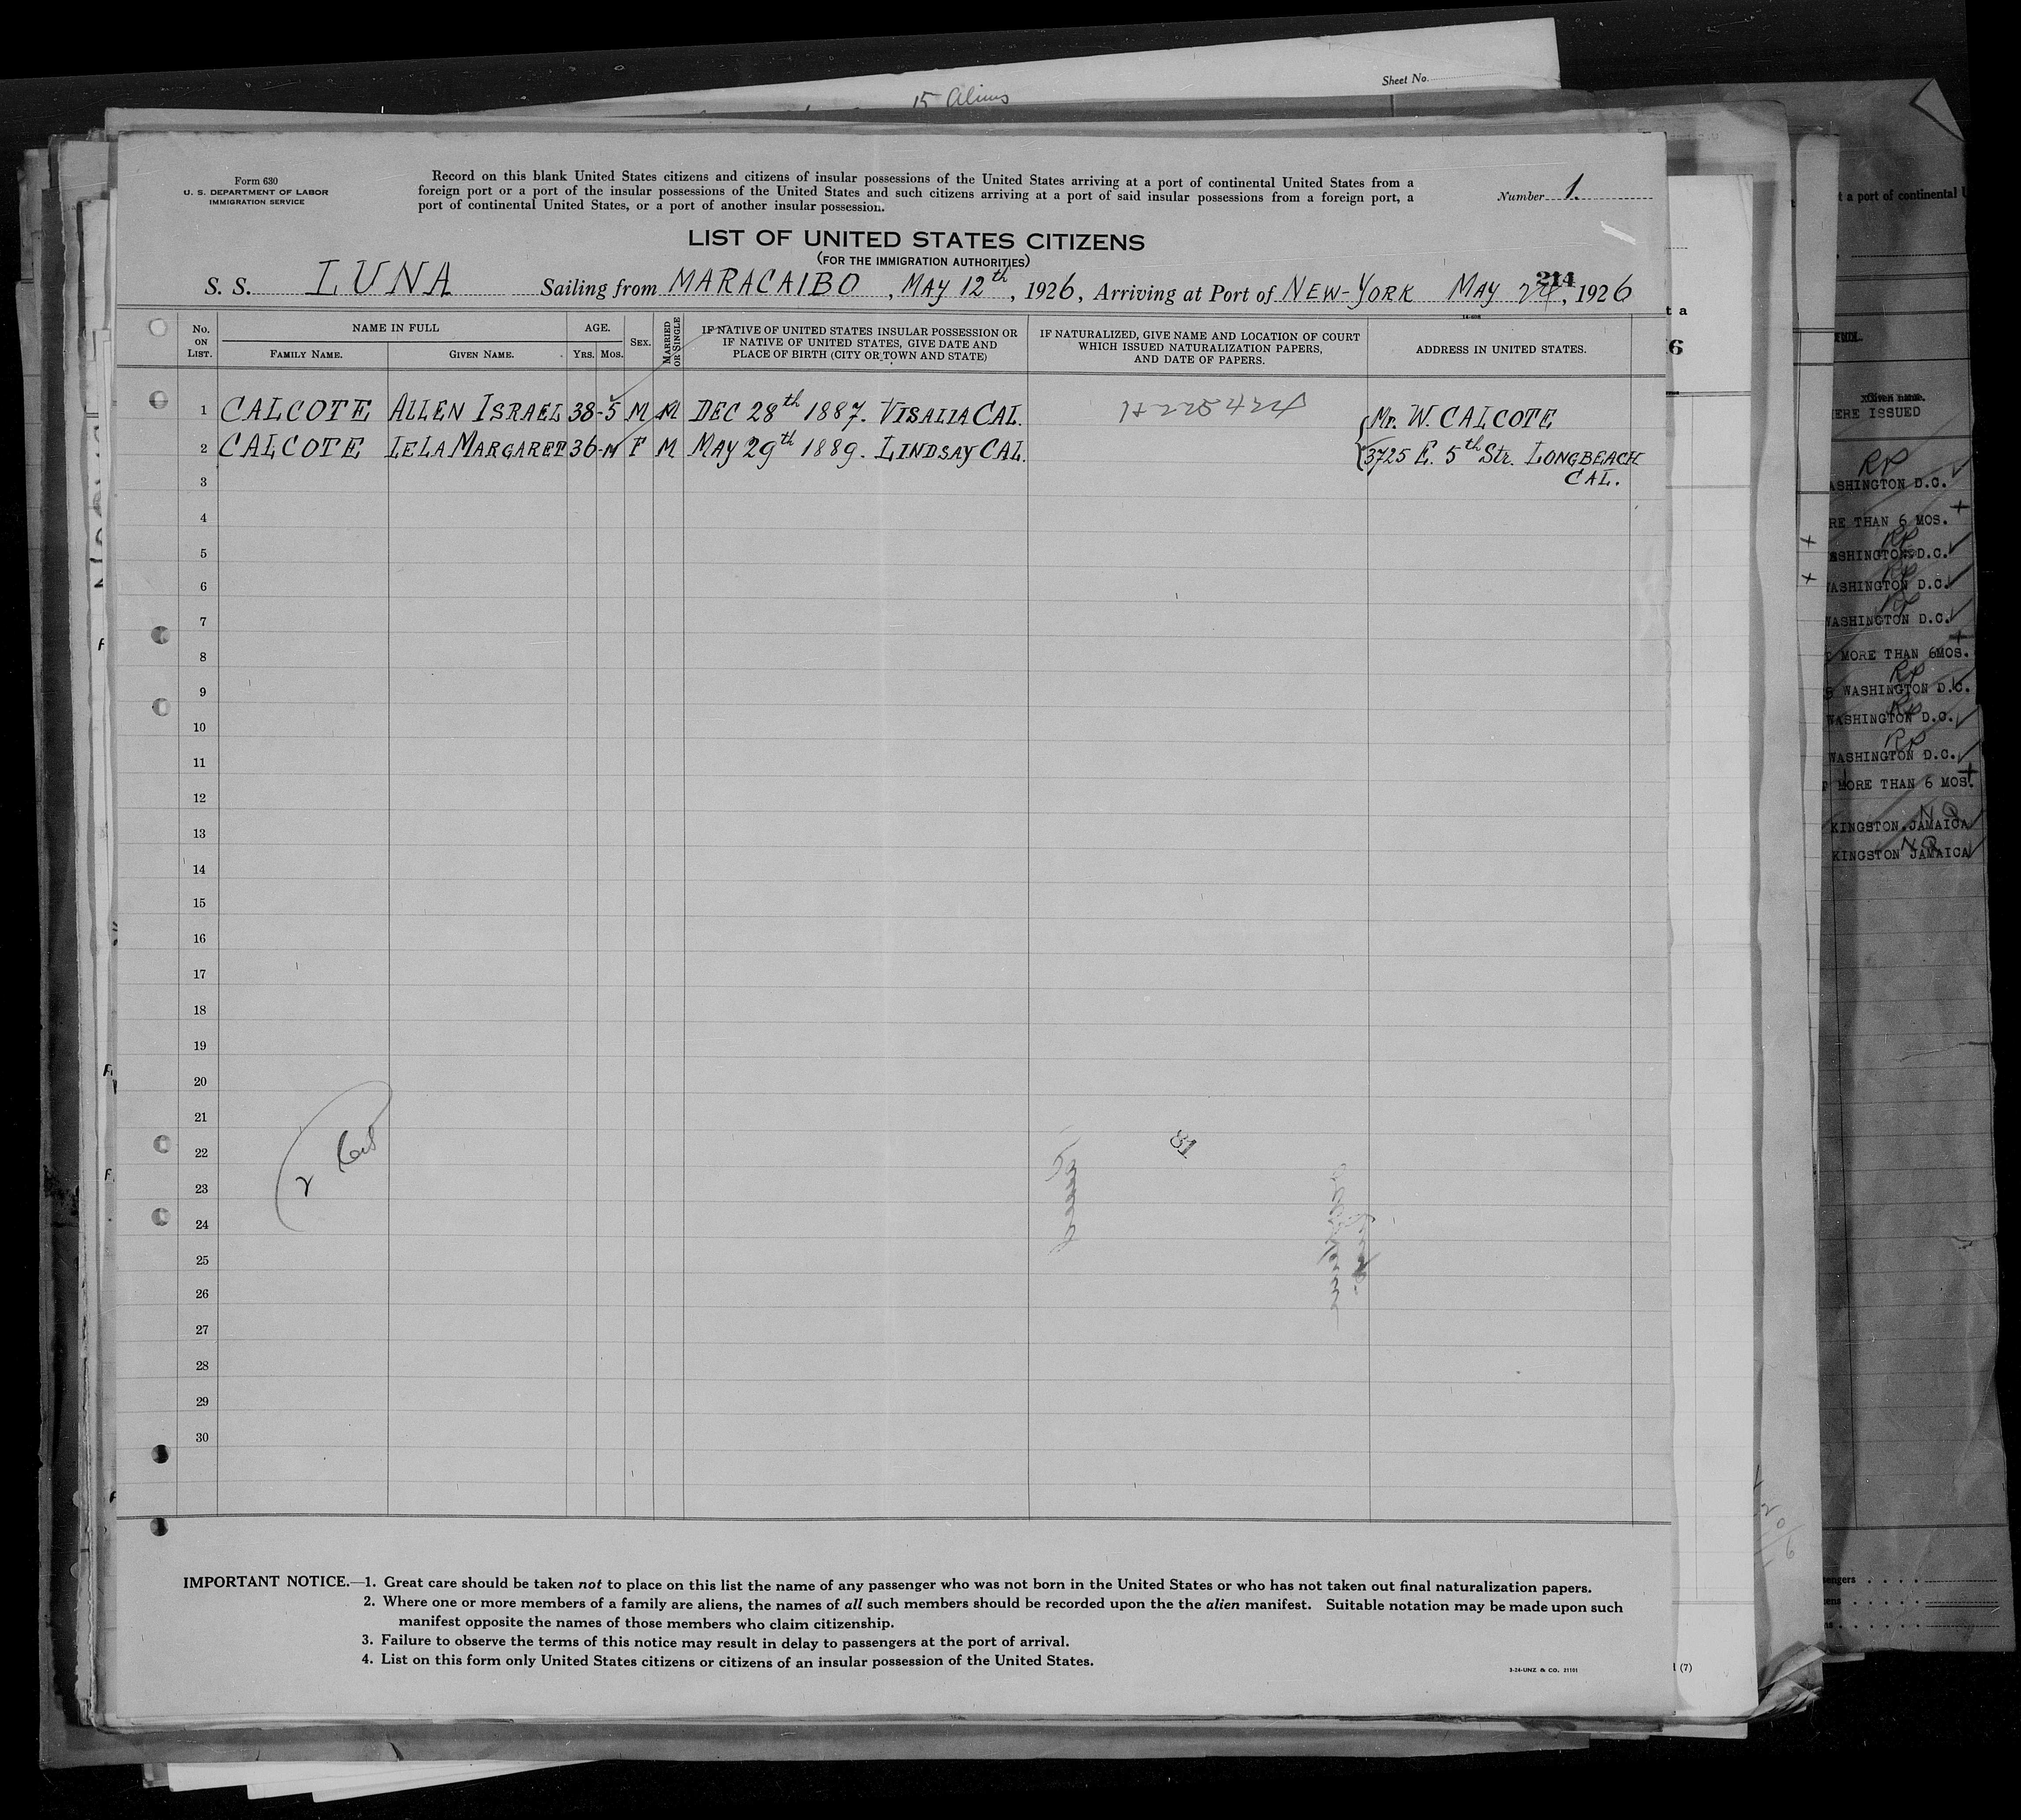 Sheet No.
15 Aliens
Form 630
U. S. DEPARTMENT OF LABOR
IMMIGRATION SERVICE
Record on this blank United States citizens and citizens of insular possessions of the United States arriving at a port of continental United States from a
foreign port or a port of the insular possessions of the United States and such citizens arriving at a port of said insular possessions from a foreign port, a
port of continental United States, or a port of another insular possession.
Number 1.
LIST OF UNITED STATES CITIZENS
(FOR THE IMMIGRATION AUTHORITIES)
214
S. S. LUNA Sailing from MARACAIBO, MAY 12th, 1926, Arriving at Port of NEW-YORK MAY 24, 1926
No. ON LIST.
NAME IN FULL
FAMILY NAME. GIVEN NAME.
AGE.
YRS. MOS.
SEX.
MARRIED OR SINGLE
IF NATIVE OF UNITED STATES INSULAR POSSESSION OR
IF NATIVE OF UNITED STATES, GIVE DATE AND
PLACE OF BIRTH (CITY OR TOWN AND STATE)
IF NATURALIZED, GIVE NAME AND LOCATION OF COURT
WHICH ISSUED NATURALIZATION PAPERS,
AND DATE OF PAPERS.
ADDRESS IN UNITED STATES.
1 CALCOTE ALLEN ISRAEL 38-5 M M DEC 28th 1887. VISALIA CAL. Mr. W. CALCOTE
2 CALCOTE LELA MARGARET 36-11 F M MAY 29th 1889. LINDSAY CAL. 3725 E. 5th Str. LONGBEACH
3 CAL.
4
5
6
7
8
9
10
11
12
13
14
15
16
17
18
19
20
21
22
23
24
25
26
27
28
29
30
81
IMPORTANT NOTICE.—1. Great care should be taken not to place on this list the name of any passenger who was not born in the United States or who has not taken out final naturalization papers.
2. Where one or more members of a family are aliens, the names of all such members should be recorded upon the the alien manifest. Suitable notation may be made upon such
manifest opposite the names of those members who claim citizenship.
3. Failure to observe the terms of this notice may result in delay to passengers at the port of arrival.
4. List on this form only United States citizens or citizens of an insular possession of the United States.
3-24-UNZ & CO. 21101
1 (7)
t a port of continental
ERE ISSUED
RP
ASHINGTON D.C.
RE THAN 6 MOS.
RP
ASHINGTON D.C.
RP
WASHINGTON D.C.
RP
WASHINGTON D.C.
MORE THAN 6MOS.
RP
WASHINGTON D.C.
RP
WASHINGTON D.C.
RP
WASHINGTON D.C.
MORE THAN 6 MOS.
NQ
KINGSTON JAMAICA
NQ
KINGSTON JAMAICA